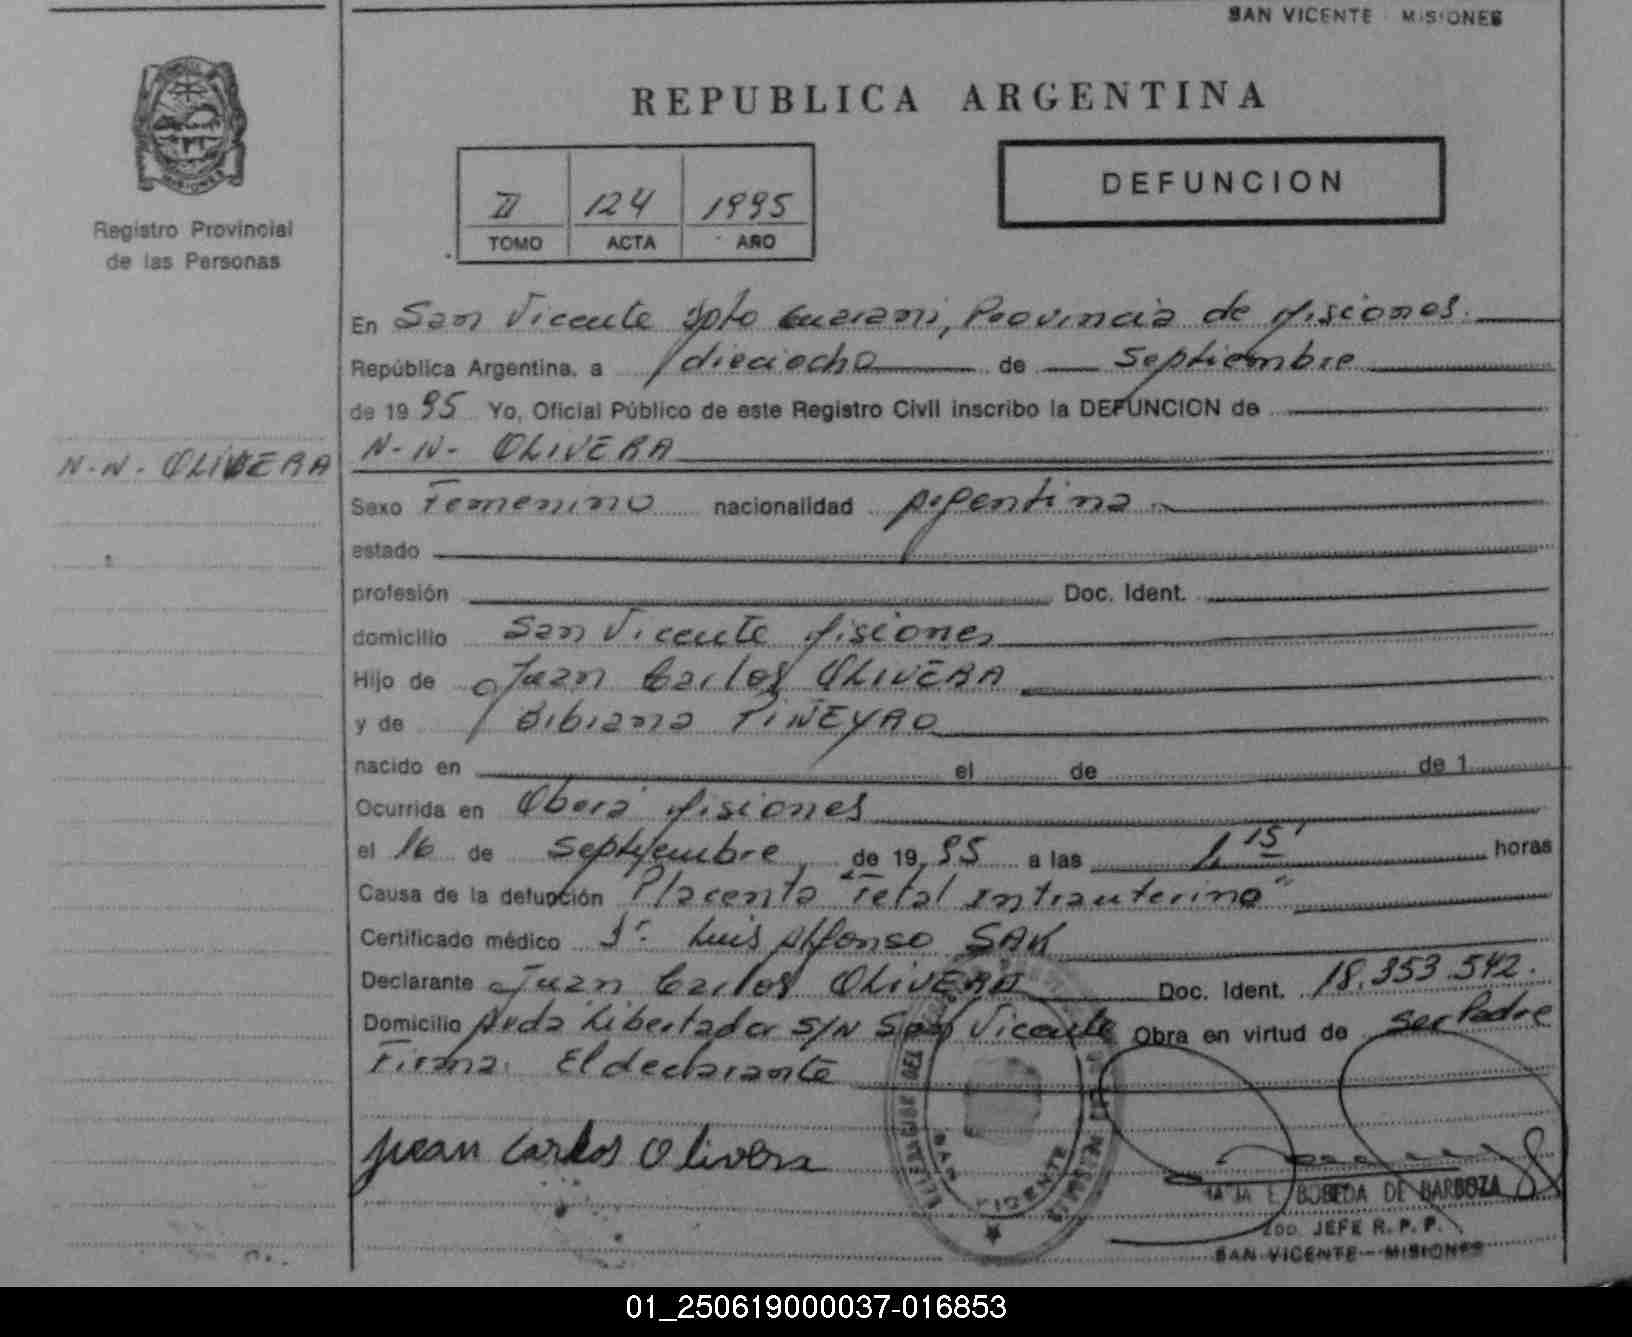 SAN VICENTE - MISIONES
REPUBLICA ARGENTINA
DEFUNCION
II 124 1995
TOMO ACTA AÑO
MISIONES
Registro Provincial
de las Personas
En San Vicente Dpto Guarani, Provincia de Misiones.
República Argentina, a dieciocho de Septiembre
de 1995 Yo, Oficial Público de este Registro Civil inscribo la DEFUNCION de
N-N- OLIVERA
N-N- OLIVERA
Sexo Femenino nacionalidad Argentina
estado
profesión Doc. Ident.
domicilio San Vicente Misiones
Hijo de Juan Carlos OLIVERA
y de Bibiana PIÑEYRO
nacido en el de de 1
Ocurrida en Oberá Misiones
el 16 de Septiembre de 1995 a las 1,15' horas
Causa de la defunción Placenta "Fetal Intrauterino"
Certificado médico Dr. Luis Alfonso SAK
Declarante Juan Carlos OLIVERA Doc. Ident. 18.353.542.
Domicilio Avda Libertador S/N San Vicente Obra en virtud de ser Padre
Firma: El declarante
Juan Carlos Olivera
SAN VICENTE
E. BOBEDA DE BARBOZA
2DO. JEFE R. P. P.
SAN VICENTE - MISIONES
01_250619000037-016853